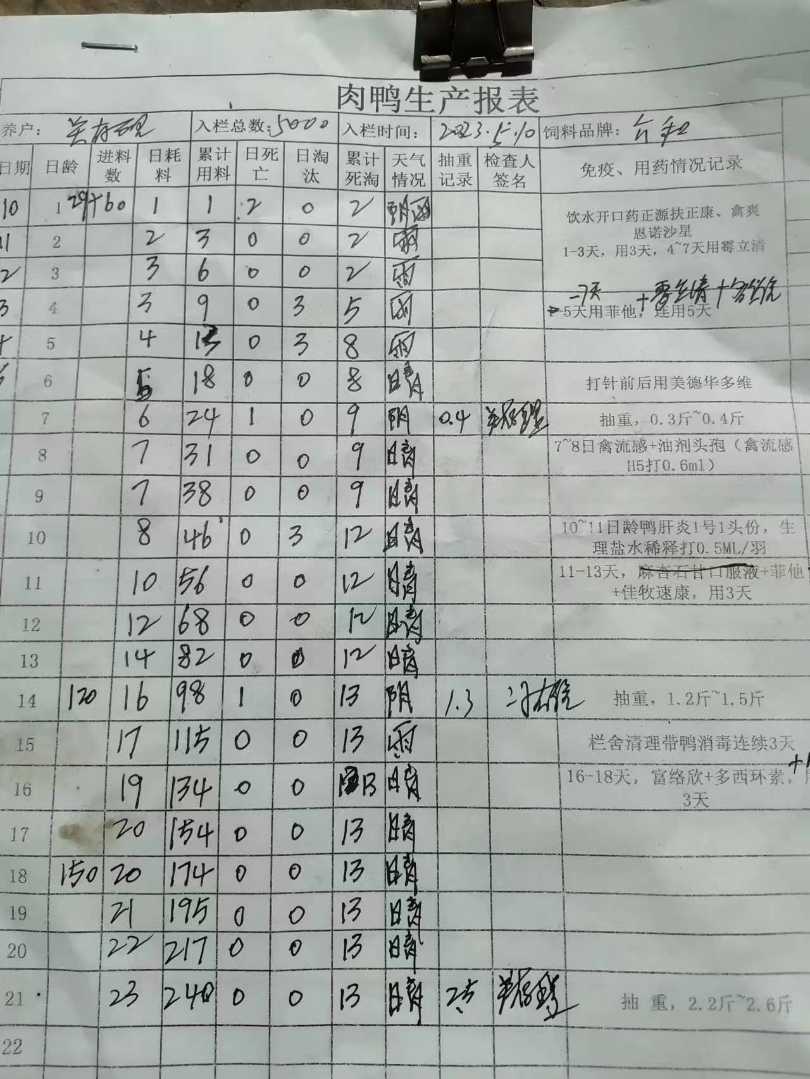 肉鸭生产报表
养户: 入栏总数:5000 入栏时间: 2023.5.10 饲料品牌:
日期 日龄 进料数 日耗料 累计用料 日死亡 日淘汰 累计死淘 天气情况 抽重记录 检查人签名 免疫、用药情况记录
10 1 29+60 1 1 2 0 2 阴雨 饮水开口药正源扶正康、禽爽
恩诺沙星
11 2 2 3 0 0 2 雨 1-3天，用3天，4~7天用霉立清
2 3 3 6 0 0 2 雨
3 4 3 9 0 3 5 雨 -7天 +霉立清+
5天用菲他，连用5天
5 4 13 0 3 8 雨
6 5 18 0 0 8 晴 打针前后用美德华多维
7 6 24 1 0 9 阴 0.4 抽重，0.3斤~0.4斤
8 7 31 0 0 9 晴 7~8日禽流感+油剂头孢（禽流感
H5打0.6ml）
9 7 38 0 0 9 晴
10 8 46 0 3 12 晴 10~11日龄鸭肝炎1号1头份，生
理盐水稀释打0.5ML/羽
11 10 56 0 0 12 晴 11-13天，麻杏石甘口服液+菲他
+佳牧速康，用3天
12 12 68 0 0 12 晴
13 14 82 0 0 12 晴
14 120 16 98 1 0 13 阴 1.3 抽重，1.2斤~1.5斤
15 17 115 0 0 13 雨 栏舍清理带鸭消毒连续3天
16 19 134 0 0 13 晴 16-18天，富络欣+多西环素，
3天
17 20 154 0 0 13 晴
18 150 20 174 0 0 13 晴
19 21 195 0 0 13 晴
20 22 217 0 0 13 晴
21 23 240 0 0 13 晴 2.5 抽 重，2.2斤~2.6斤
22